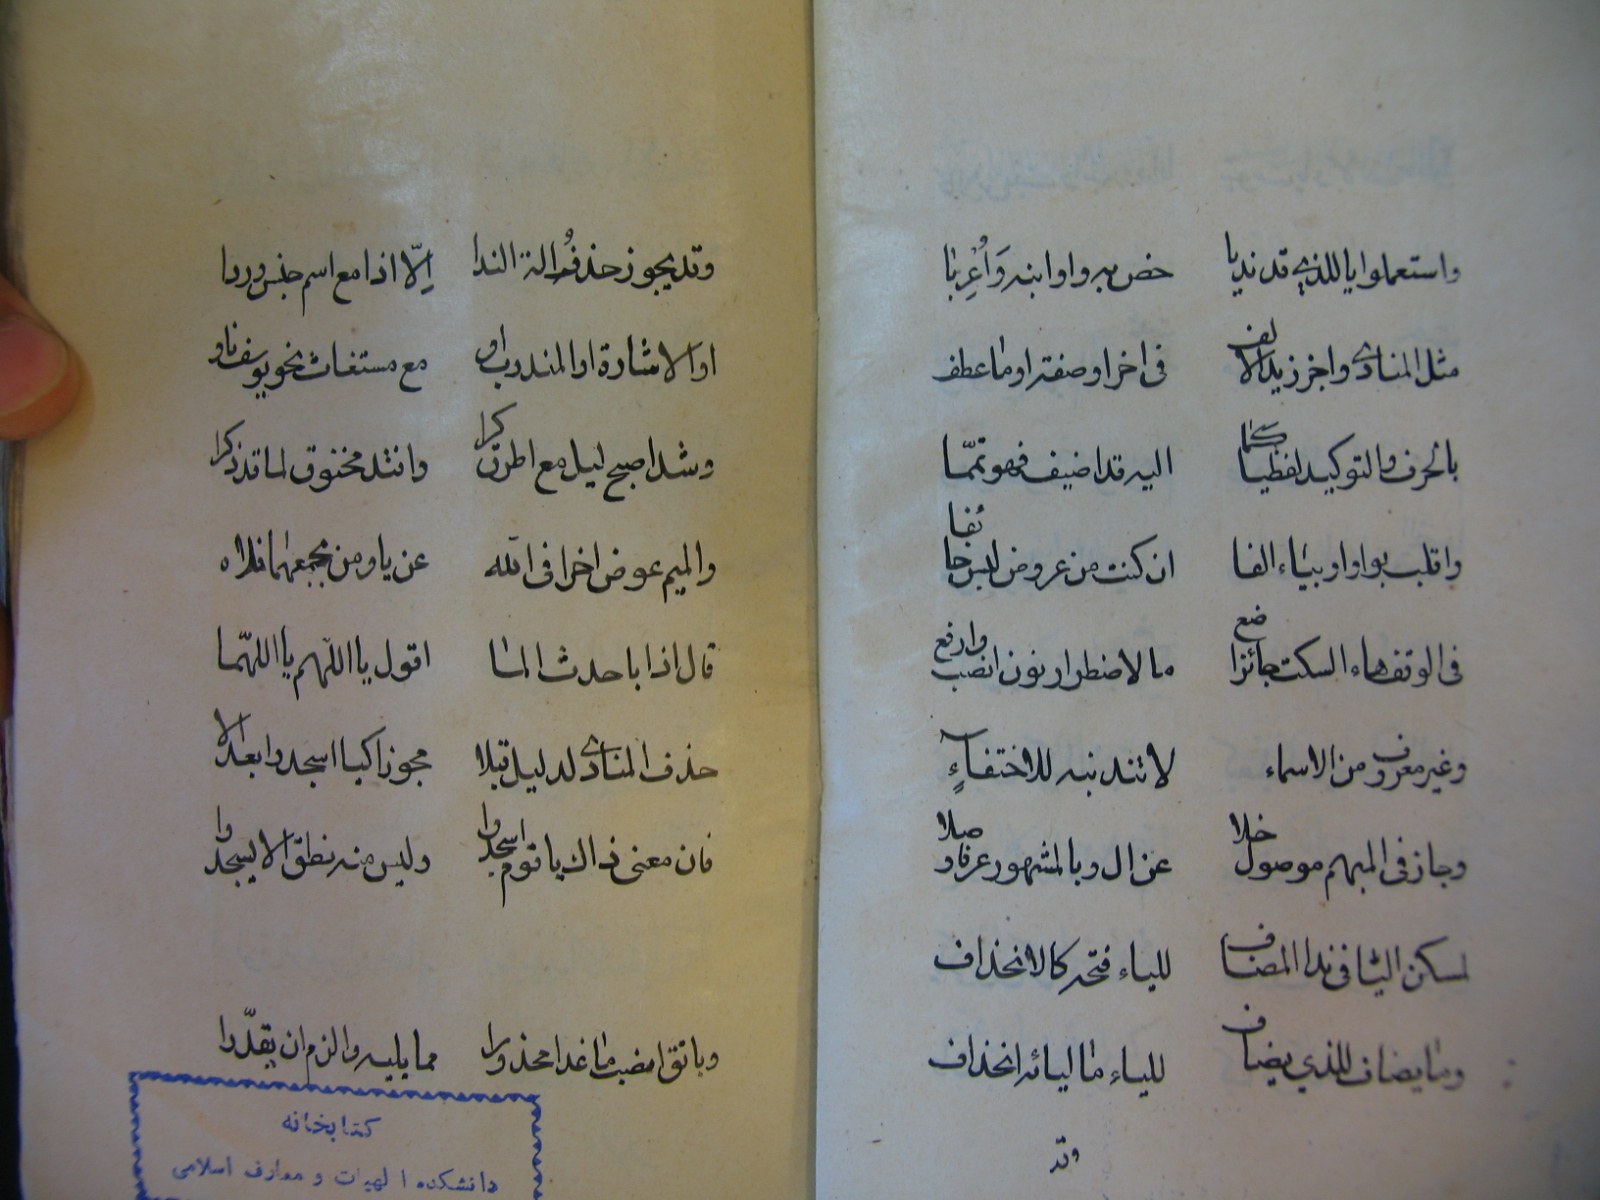 واستعملوا يا للذى قد ندبا خص به وا وابنه وأعربا
مثل المنادى واجز زيد الالف فى اخر او صفته او ما عطف
بالحرف والتوكيد لفظيا كما اليه قد اضيف فهو تمما
واقلب بواو او بياء الفا ان كنت من عروض لبس خائفا
فى الوقف هاء السكت جائزا ضع مالاضطرار نون انصب وارفع
وغير معروف من الاسماء لا تندبنه للاختفاء
وجاز فى المبهم موصول خلا عن ال وبالمشهور عرفا وصلا
لسكن اليا فى ندا المضاف للياء فتحه كالانحذاف
وما يضاف للذي يضاف للياء ما ليائه انحذاف
وقد
وقد يجوز حذف الة الندا إلّا اذا مع اسم جنس وردا
او الاشارة او المندوب او مع مستغاث نحو يوسف ناو
وشذ اصبح ليل مع اطرق كرا وافتد مخنوق لما قد ذكرا
والميم عوض اخرا فى الله عن يا ومن مجمعهما فلاه
قال اذا با حدث الما اقول يا اللّهم يا اللهمّا
حذف المنادى لدليل قبلا مجوز اكيا اسجدوا بعد الا
فان معنى ذاك يا قوم اسجدوا وليس منه نطق الا يسجدوا
وباتق امضب ما غدا محذورا مما يليه والزم ان يقدّرا
كتابخانه
دانشكده الهيات و معارف اسلامى